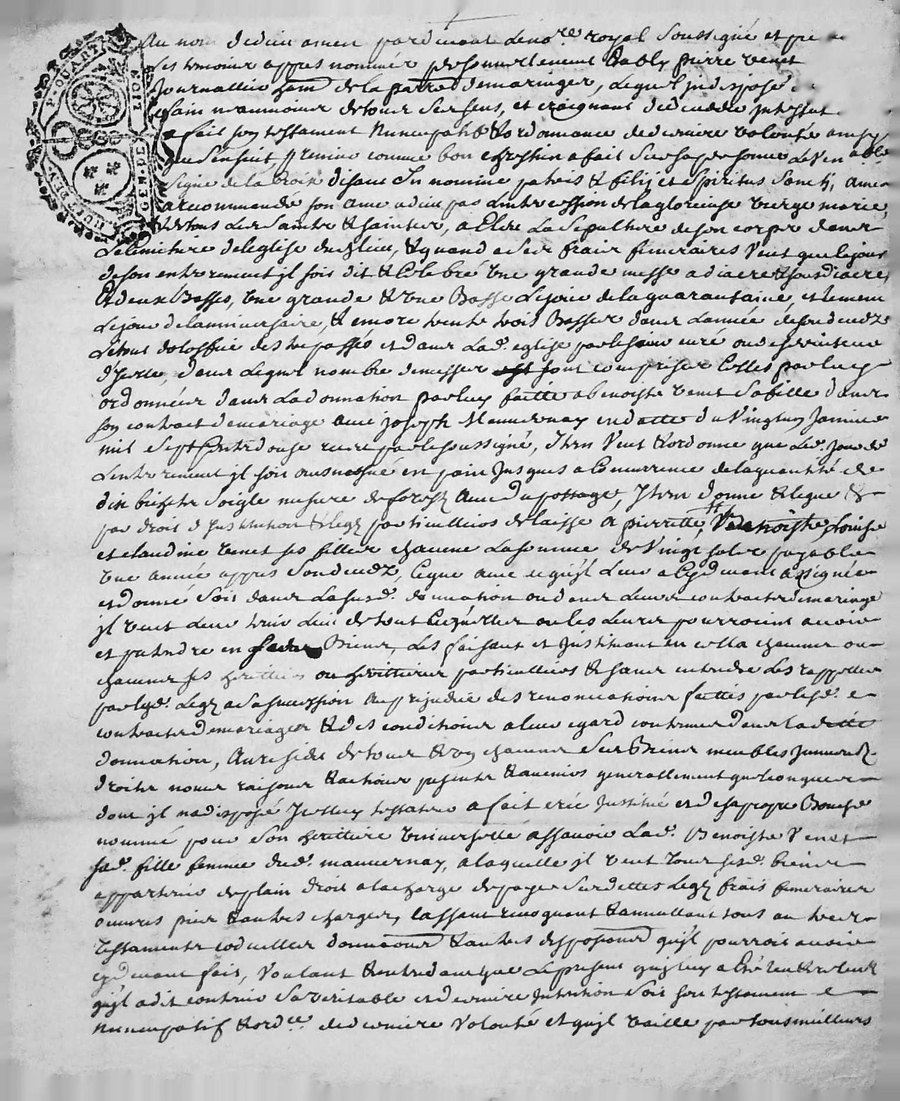 P. QUART
GEN. DE LION
HUIT DEN
Au nom de dieu amen pardevant le no.re royal soussigné et pre
ses temoins appres nommez personnellement estably pierre venet
Journallier hant de la parre de maringes, lequel indisposé
sain neanmoins de tous ses sens, et craignant de deceder intestat
a fait son testament nuncupatif & ordonnance de derniere volonté ainsy
que sensuit, premier comme bon chrestien a fait sur sa personne le venerable
signe de la croix disant In nomine patris & filij et spiritus sancti, amen
a recommandé son ame a dieu par lintercession de la glorieuse vierge marie,
& de tous les saints & saintes, a Eleu la sepulture de son corps dans
le cimitiere de leglise du lieu, & quand a ses frais funeraires veut que le jour
de son enterrement jl soit dit & celebré une grande messe a diacre & sousdiacre,
et deux Basses, une grande & une Basse le jour de la quarantaine, et
le jour de lanniversaire, & encore trente trois Basses dans lannée de son decedz
letout de loffice des trepassés et dans lad. eglise par le sieur curé ou desserviteur
d'Icelle, dans lequel nombre de messes sont comprises celles par luy
ordonnées dans la donnation par luy faitte a benoiste venet sa fille dans
son contract de mariage avec joseph Mauvernay en datte du vingtun Janvier
mil sept cents douse receu par le soussigné, Item veut & ordonne que led. jour de
lenterrement jl soit aumosné en pain jusques a concurrence de la quantité de
dix bichets soigle mesure de forest avec du pottage, Item donne & legue &
par droit d'Institution & legz particulliers delaisse a pierrette, Benoiste, Louise
et claudine venet ses filles chacune la somme de vingt sols payable
une année appres son decedz, ce que avec ce quil leur a cydevant assigné
et donné soit dans la susd. donnation ou dans leurs contracts de mariage
jl veut leur tenir lieu de tout ce quelles ou les leurs pourroient avoir
et pretendre en ses Biens, les faisant et jnstituant en cella chacune ou
chacunes ses heritiers ou heritieres particulliers & sans entendre les rappeller
par lesd. legz a sa succession au prejudice des renonciations faittes par lesd.
contracts de mariages & des conditions a leur egard contenues dans la ditte
donnation, Au residu de tous & un chacuns ses Biens meubles jmmeubles
droits noms raisons & actions presents & avenirs generallement quelconques
dont jl na disposé Jcelluy testateur a fait creé jnstitué et de sa propre Bouche
nommé pour son heritiere universelle assavoir lad. Benoiste Venet
sad. fille femme dud. mauvernay, a laquelle jl veut tous sesd. biens
appartenir de plain droit a la charge de payer ses dettes legz frais funeraires
œuvres pies & autres charges, cassant revoquant & annullant tous autres
testaments codicilles donnations & autres dispositions quil pourroit avoir
cydevant fait, voulant & entendant que le present
quil a dit contenir sa veritable et derniere Intention soit son testament
nuncupatif & ord.ce de derniere volonté et quil vaille par tous meilleurs